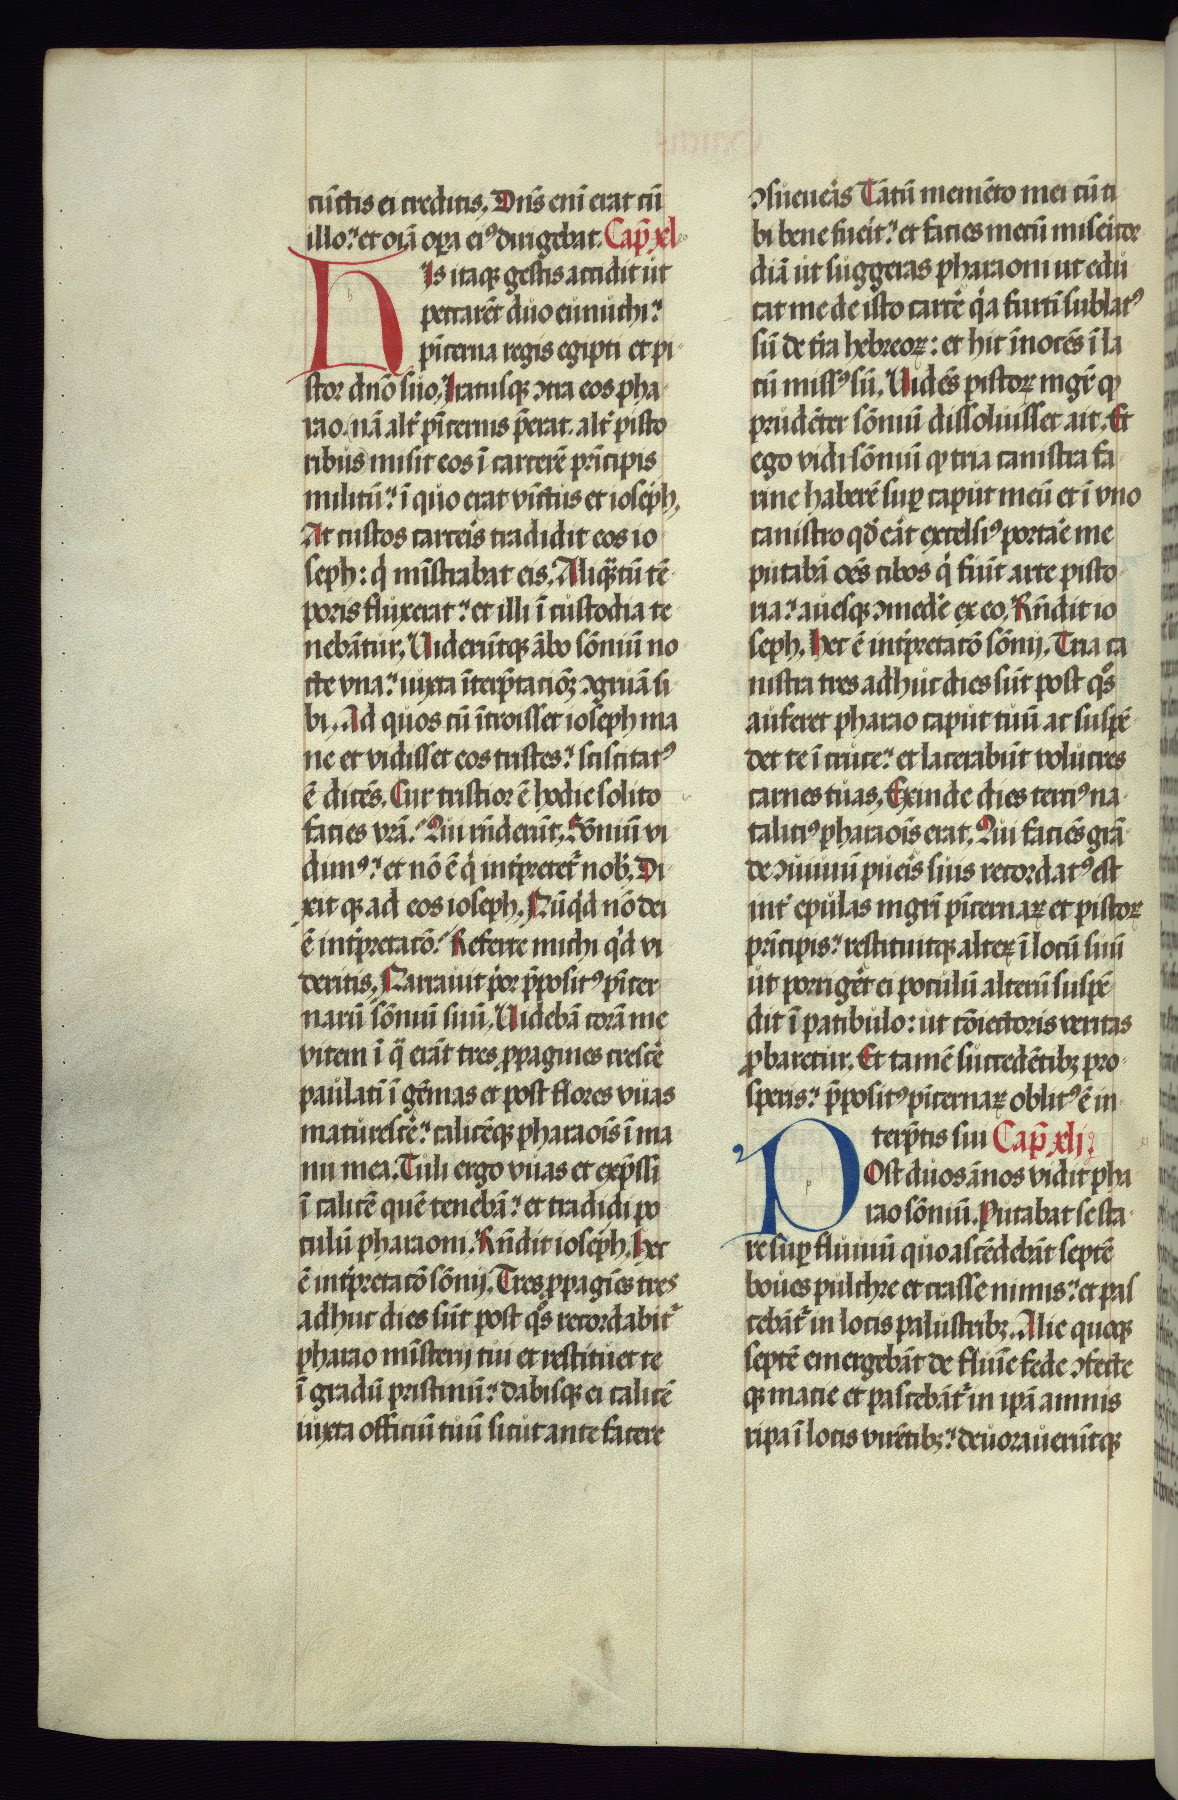 cūctis ei creditis. Dn̄s eni̅ erat cū
illo: et oīa̅ oꝑa eiꝰ dirigebat. Cap̄ xl
His itaqꝫ gestis accidit ut
peccare̅t duo eunuchi:
pīcerna regis egipti et pi
stor dn̅o suo. Iratusqꝫ ↄtra eos pha
rao. na̅ alt̉ pīcernis p̅erat. alt̉ pisto
ribus misit eos ī carcere̅ prīcipis
militū: ī quo erat vīctus et ioseph.
At custos carceris tradidit eos io
seph: qͥ mīstrabat eis. Aliqᷓtū te̅
poris fluxerat: et illi ī custodia te
neba̅tur. Uiderūtqꝫ a̅bo so̅niū no
cte vna: iuxta īterp̄tacio̅ꝫ ↄgrua̅ si
bi. Ad quos cū ītroisset ioseph ma
ne et vidisset eos tristes: sciscitatꝰ
e̅ dice̅s. Cur tristior e̅ hodie solito
facies vr̅a: Qui rn̅derūt. So̅niū vi
dimꝰ: et no̅ e̅ qͥ int̉pretet̉ nob̉. Di
xit qꝫ ad eos ioseph. Nūqͥd no̅ dei
e̅ int̉pretato̅: Referte michi qͥd vi
deritis. Narrauit p̉or p̄positꝰ pīcer
narū so̅niū suū. Uideba̅ cora̅ me
vitem ī qᷓ era̅t tres ꝓpagines cresce̅
paulati̅ ī ge̅mas et post flores vuas
maturesce̅: calice̅qꝫ pharaois̅ ī ma
nu mea. Tuli ergo vuas et exp̄ssi
ī calice̅ que̅ teneba̅: et tradidi po
culū pharaoni. Rn̅dit ioseph. Hec
e̅ int̉pretato̅ so̅nij. Tres ꝓpagi̅es tres
adhuc dies sūt post qᷦs recordabit̉
pharao mīsterij tui et restituet te
ī gradū pristinū: dabisqꝫ ei calice̅
iuxta officiū tuū sicut ante facere
ↄsueuerͣs Ta̅tū meme̅to mei cū ti
bi bene fuerͥt: et facies mecū miserͥcor
dia̅ ut suggeras pharaoni ut edu
cat me de isto carce̅ qͥa furti̅ sublatꝰ
sū de t̉ra hebreoꝝ: et hic īnoce̅s ī la
cū missꝰ sū. Uide̅s pistoꝝ mgr̄ ꝙ
prude̅ter so̅niū dissoluisset ait. Et
ego vidi so̅niū ꝙ tria canistra fa
rine habere̅ suꝑ caput meū et ī vno
canistro qd̉ era̅t excelsiꝰ portare̅ me
putaba̅ oe̅s cibos qͥ fiūt arte pisto
ria: auesqꝫ ↄmede̅ ex eo. Rn̅dit io
seph. Hec e̅ int̉pretato̅ so̅nij. Tria ca
nistra tres adhuc dies sūt post qᷦs
auferet pharao caput tuū ac suspe̅
det te ī cruce: et lacerabūt volucres
carnes tuas. Exinde dies terciꝰ na
taliciꝰ pharaois̅ erat. Qui facie̅s gra̅
de ↄuiuiū pueris̉ suis recordatꝰ est
int̉ epulas mgr̄i pīcernaꝝ et pistoꝝ
prīcipis: restituitqꝫ alteꝝ ī locū suū
ut porriget̉ ei poculū alterū suspe̅
dit ī patibulo: ut co̅iectoris veritas
ꝓbaretur. Et tame̅ succede̅tibꝫ pro
speris: p̄positꝰ pīcernaꝝ oblitꝰ e̅ in
terp̄tis sui Cap̄ xlj
Post duos a̅nos vidit pha
rao so̅niū. Putabat se sta
re suꝑ fluuiū quo asce̅deba̅t septe̅
boues pulchre et crasse nimis: et pas
ceba̅t̉ in locis palustribꝫ. Alie quoqꝫ
septe̅ emergeba̅t de flui̅e fede ↄfecte
qꝫ macie et pasceba̅t̉ in ip̅a amnis
ripa ī locis vire̅tibꝫ: deuorauerūtqꝫ